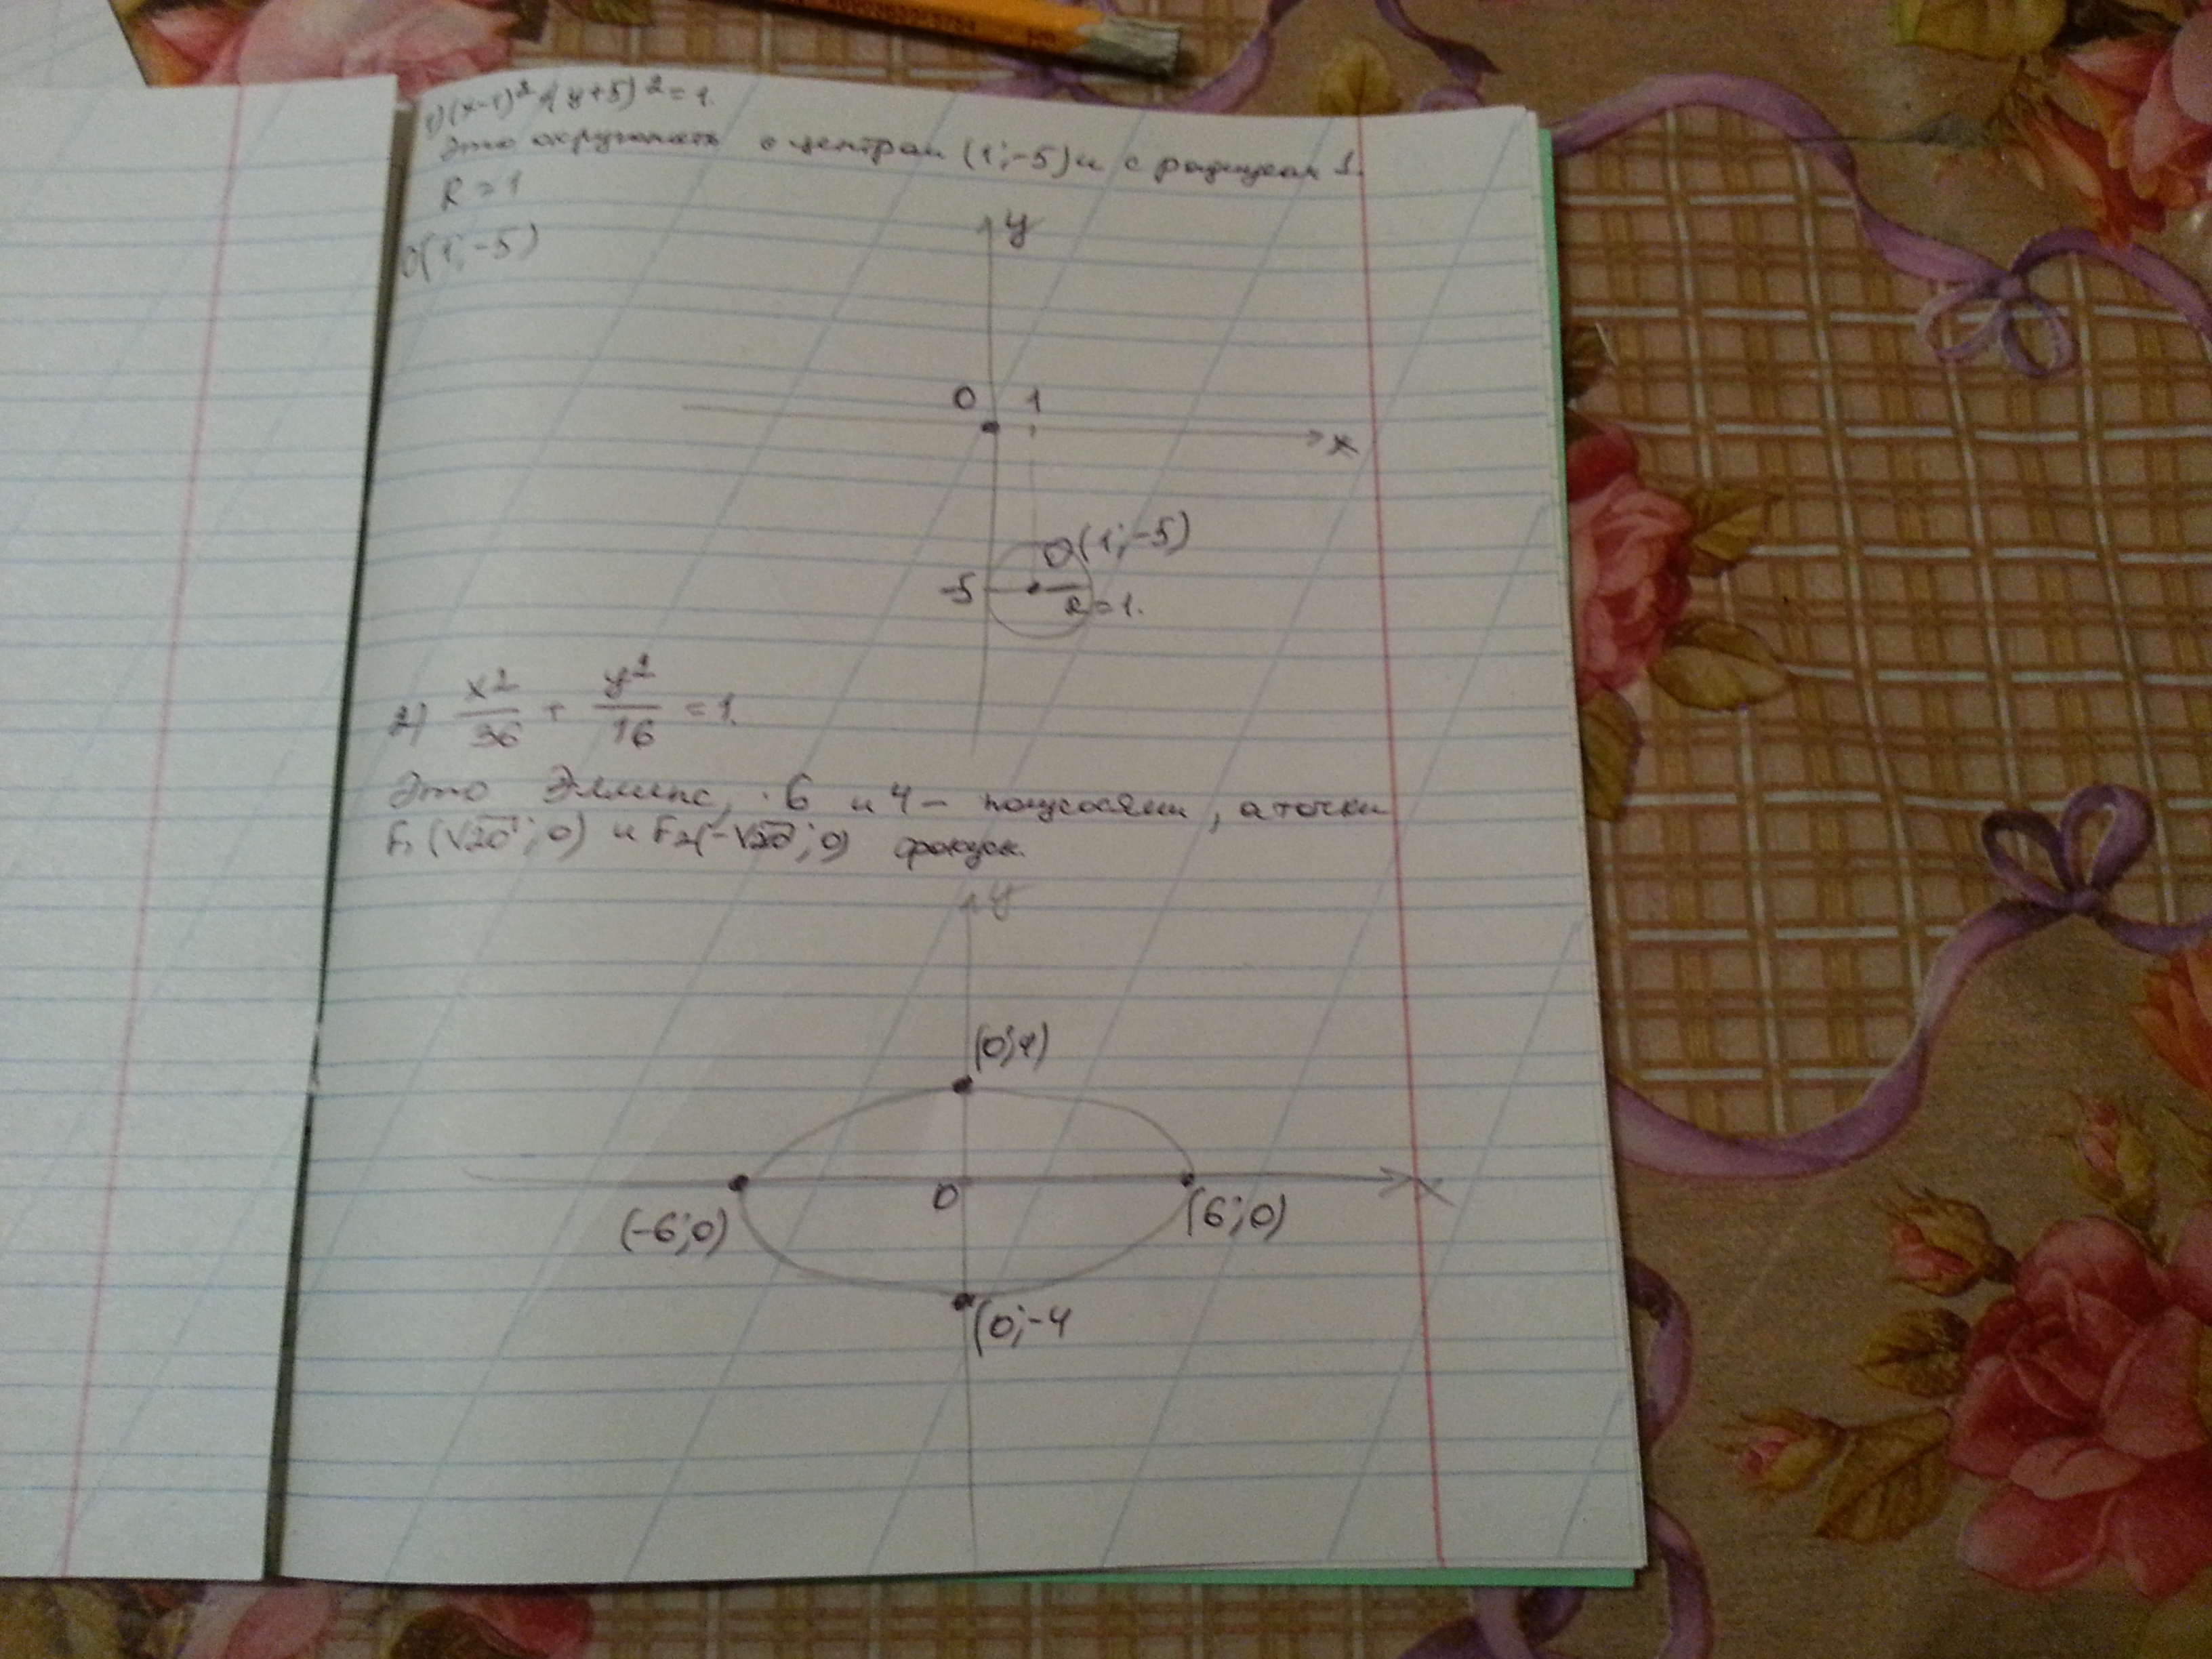 1) (x-1)² + (y+5)² = 1.
Это окружность с центром (1; -5) и с радиусом 1.
R = 1
O(1; -5)
y
0 1
x
O(1; -5)
-5
R = 1.
2) x²/36 + y²/16 = 1.
Это Эллипс, 6 и 4 - полуосями, а точки
F₁(√20; 0) и F₂(-√20; 0) фокусы.
y
(0; 4)
0
x
(-6; 0)
(6; 0)
(0; -4